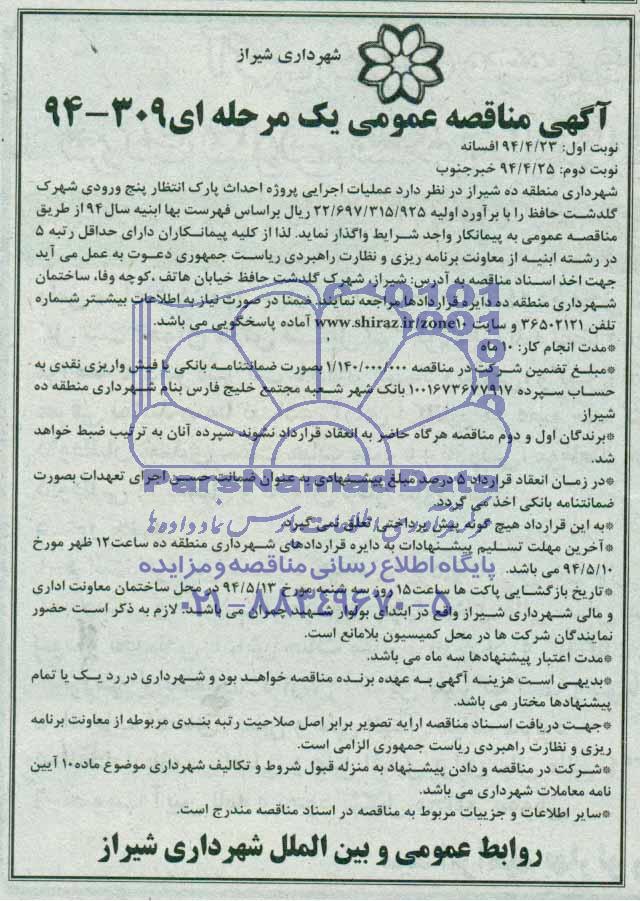 شهرداری شیراز
آگهی مناقصه عمومی یک مرحله ای ۳۰۹-۹۴
نوبت اول: ۹۴/۴/۲۳ افسانه
نوبت دوم: ۹۴/۴/۲۵ خبرجنوب
شهرداری منطقه ده شیراز در نظر دارد عملیات اجرایی پروژه احداث پارک انتظار پنج ورودی شهرک
گلدشت حافظ را با برآورد اولیه ۲۲/۶۹۷/۳۱۵/۹۲۵ ریال براساس فهرست بها ابنیه سال ۹۴ از طریق
مناقصه عمومی به پیمانکار واجد شرایط واگذار نماید. لذا از کلیه پیمانکاران دارای حداقل رتبه ۵
در رشته ابنیه از معاونت برنامه ریزی و نظارت راهبردی ریاست جمهوری دعوت به عمل می آید
جهت اخذ اسناد مناقصه به آدرس: شیراز، شهرک گلدشت حافظ خیابان هاتف، کوچه وفا، ساختمان
شهرداری منطقه ده دایره قراردادها مراجعه نمایند. ضمنا در صورت نیاز به اطلاعات بیشتر شماره
تلفن ۳۶۵۰۲۱۲۱ و سایت www.shiraz.ir/zone۱۰ آماده پاسخگویی می باشد.
*مدت انجام کار: ۱۰ ماه
*مبلغ تضمین شرکت در مناقصه ۱/۱۴۰/۰۰۰/۰۰۰ بصورت ضمانتنامه بانکی یا فیش واریزی نقدی به
حساب سپرده ۱۰۰۱۶۷۳۶۷۷۹۱۷ بانک شهر شعبه مجتمع خلیج فارس بنام شهرداری منطقه ده
شیراز
*برندگان اول و دوم مناقصه هرگاه حاضر به انعقاد قرارداد نشوند سپرده آنان به ترتیب ضبط خواهد
شد.
*در زمان انعقاد قرارداد ۵ درصد مبلغ پیشنهادی به عنوان ضمانت حسن اجرای تعهدات بصورت
ضمانتنامه بانکی اخذ می گردد.
*به این قرارداد هیچ گونه پیش پرداختی تعلق نمی گیرد.
*آخرین مهلت تسلیم پیشنهادات به دایره قراردادهای شهرداری منطقه ده ساعت ۱۲ ظهر مورخ
۹۴/۵/۱۰ می باشد.
*تاریخ بازگشایی پاکت ها ساعت ۱۵ روز سه شنبه مورخ ۹۴/۵/۱۳ در محل ساختمان معاونت اداری
و مالی شهرداری شیراز واقع در ابتدای بولوار شهید چمران می باشد. لازم به ذکر است حضور
نمایندگان شرکت ها در محل کمیسیون بلامانع است.
*مدت اعتبار پیشنهادها سه ماه می باشد.
*بدیهی است هزینه آگهی به عهده برنده مناقصه خواهد بود و شهرداری در رد یک یا تمام
پیشنهادها مختار می باشد.
*جهت دریافت اسناد مناقصه ارایه تصویر برابر اصل صلاحیت رتبه بندی مربوطه از معاونت برنامه
ریزی و نظارت راهبردی ریاست جمهوری الزامی است.
*شرکت در مناقصه و دادن پیشنهاد به منزله قبول شروط و تکالیف شهرداری موضوع ماده ۱۰ آیین
نامه معاملات شهرداری می باشد.
*سایر اطلاعات و جزییات مربوط به مناقصه در اسناد مناقصه مندرج است.
روابط عمومی و بین الملل شهرداری شیراز
ParsNamadData
پایگاه اطلاع رسانی مناقصه و مزایده
۰۲۱-۸۸۳۴۹۶۷۰-۵